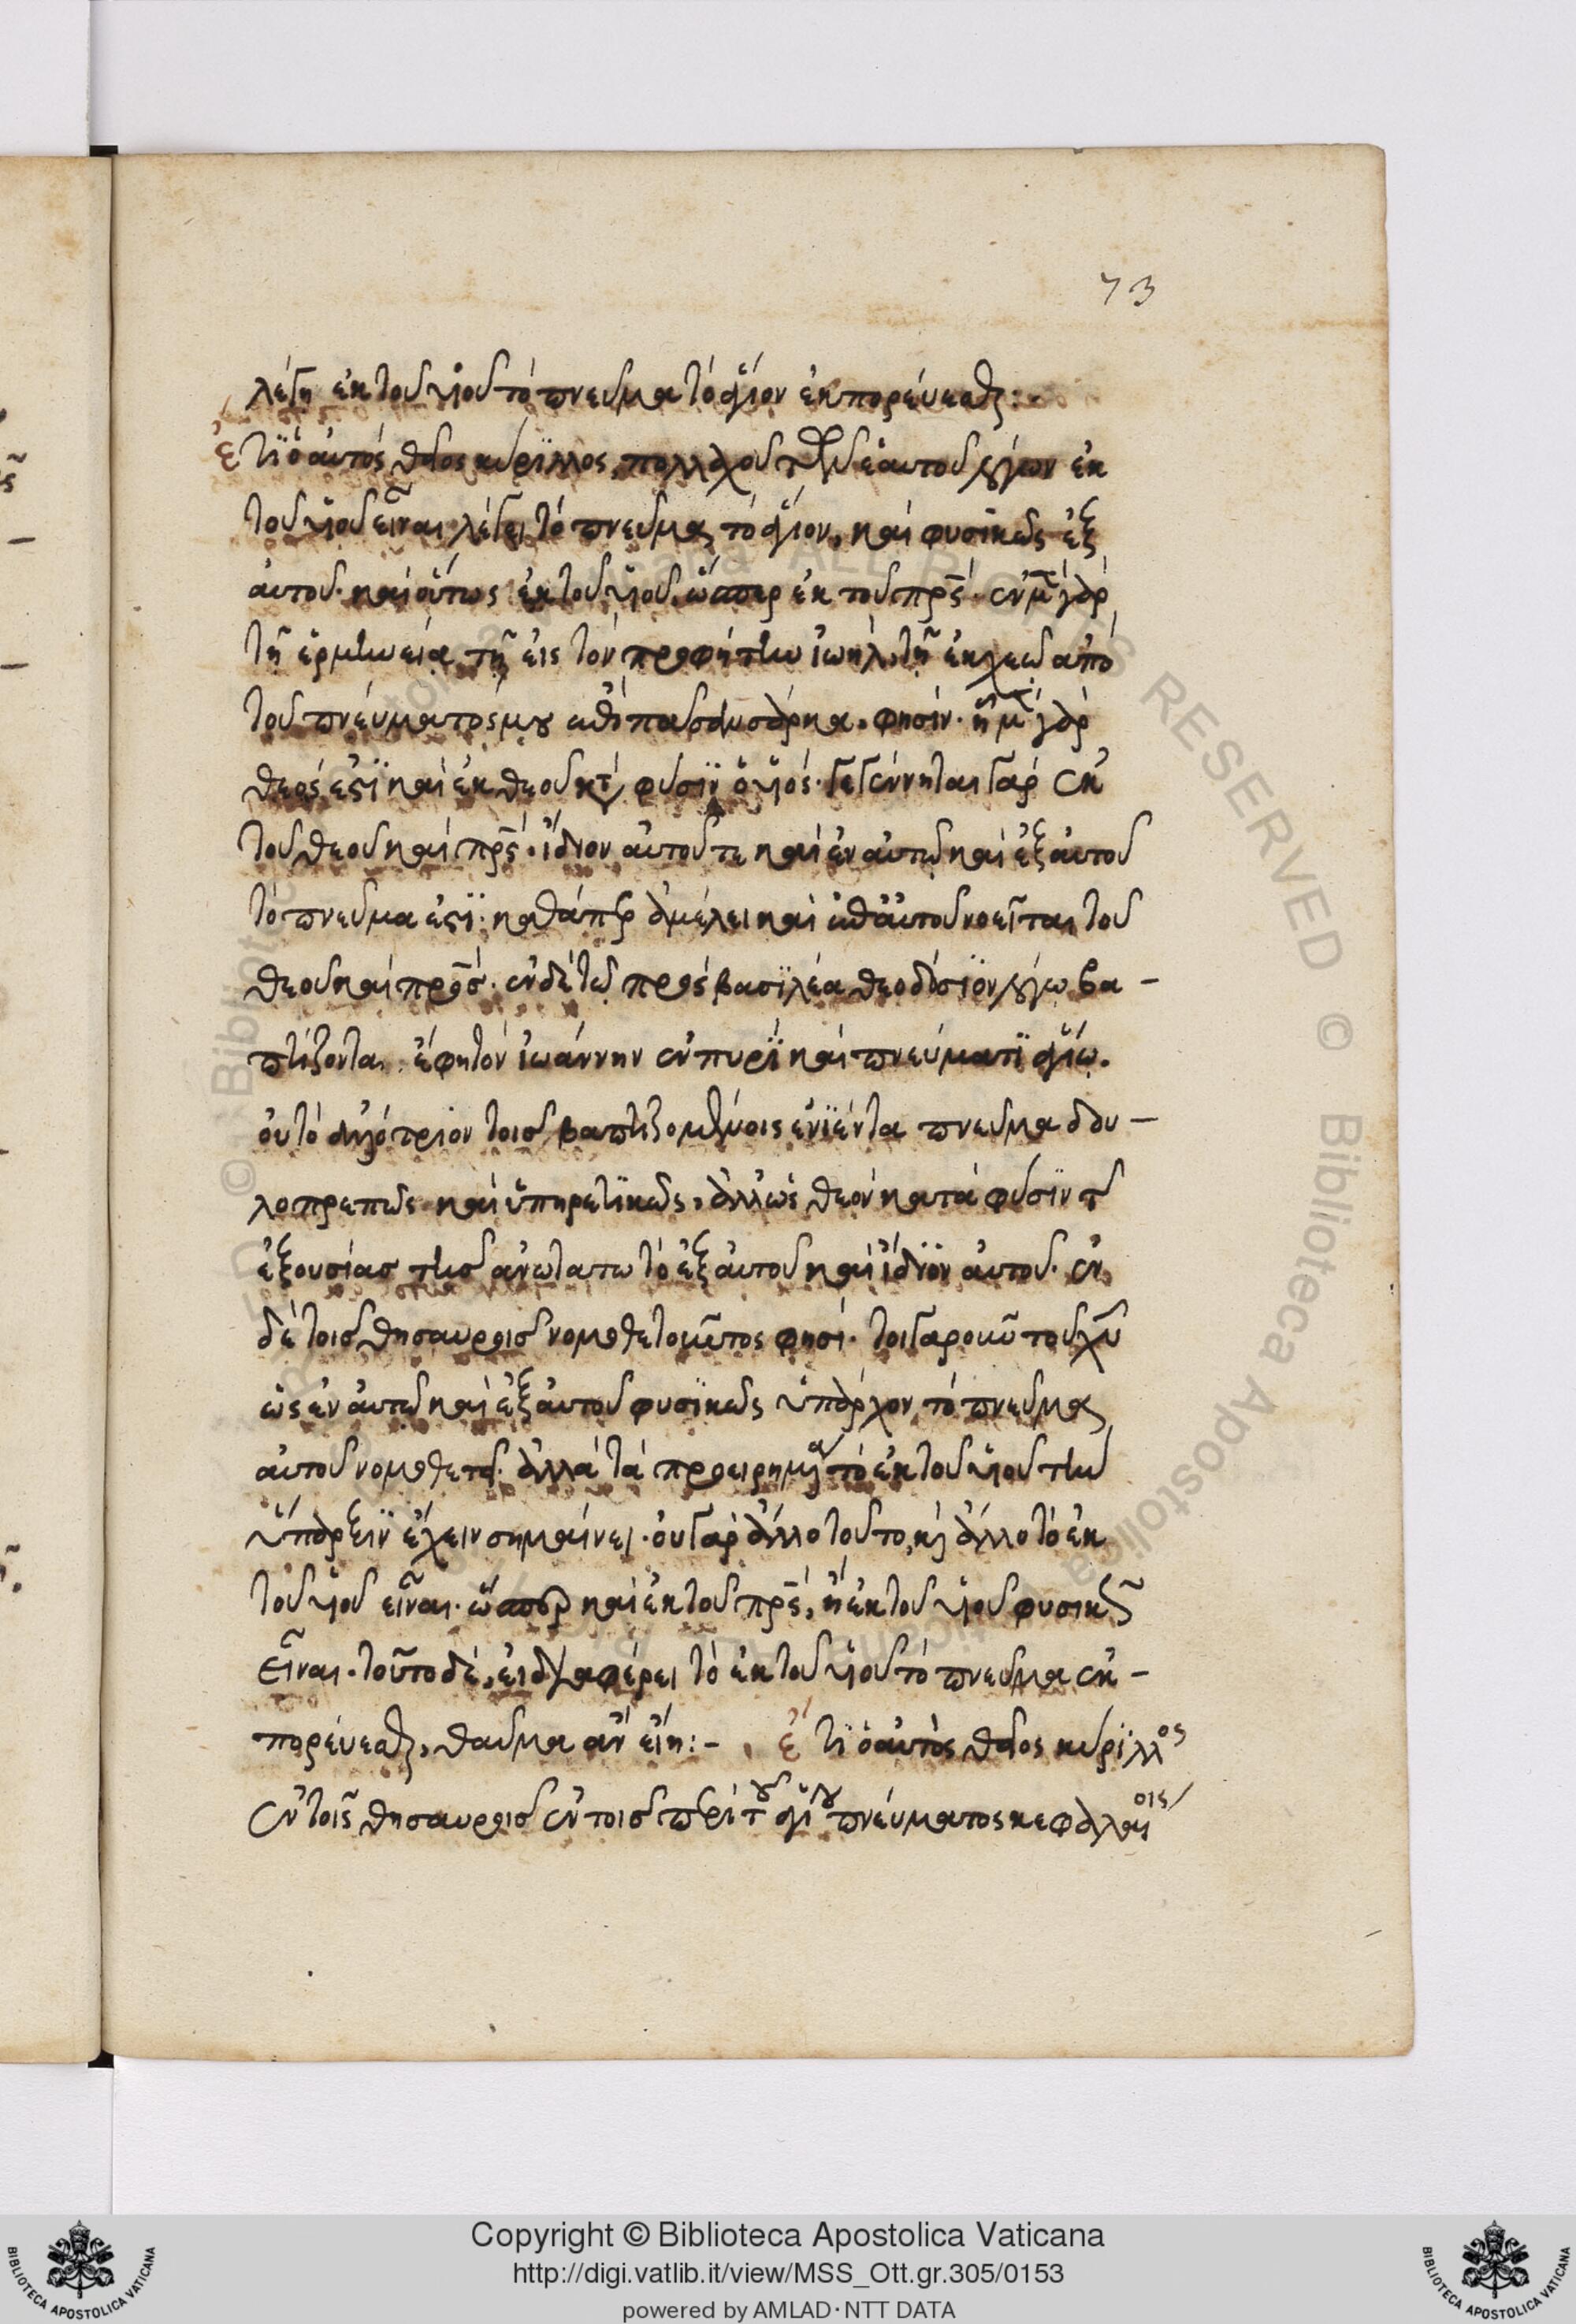 73
λέγη ἐκ τοῦ υἱοῦ τὸ πνεῦμα τὸ ἅγιον ἐκπορεύεσθαι:-
ἔτι ὁ αὐτὸς θεῖος κύριλλος, πολλαχοῦ τῶν ἑαυτοῦ λόγων ἐκ
τοῦ υἱοῦ εἶναι λέγει τὸ πνεῦμα τὸ ἅγιον, καὶ φυσικῶς ἐξ
αὐτοῦ. καὶ οὕτως ἐκ τοῦ υἱοῦ, ὥσπερ ἐκ τοῦ πρς. ἐν μ γὰρ
τῆ ἑρμηνεία τῆ εἰς τὸν προφήτην ἰωήλ, τῆ ἐκχεῶ ἀπὸ
τοῦ πνεύματός μου ἐπὶ πᾶσαν σάρκα. φησίν. ἧ μ γὰρ
θεός ἐστι καὶ ἐκ θεοῦ κατὰ φύσιν ὁ υἱός. γεγέννηται γὰρ ἐκ
τοῦ θεοῦ καὶ πρς. ἴδιον αὐτοῦ τε καὶ ἐν αὐτῶ καὶ ἐξ αὐτοῦ
τὸ πνεῦμα ἐστι. καθάπερ ἀμέλει καὶ ἐπ αὐτοῦ νοεῖται τοῦ
θεοῦ καὶ πρς. ἐν δὲ τῶ πρὸς βασιλέα θεοδόσιον λόγω βα-
πτίζοντα. ἔφη τὸν ἰωάννην ἐν πυρὶ καὶ πνεύματι ἁγίω.
οὐ τὸ ἀλλότριον τοῖς βαπτιζομένοις ἐνιέντα πνεῦμα δου-
λοπρεπῶς καὶ ὑπηρετικῶς, ἀλλ ὡς θεὸν κατὰ φύσιν τ
ἐξουσίας τῆς ἀνωτάτω τὸ ἐξ αὐτοῦ καὶ ἴδιον αὐτοῦ. ἐν
δὲ τοῖς θησαυροῖς νομοθετοῦντος φησί. τοιγαροῦν τοῦ χυ
ὡς ἐν αὐτῶ καὶ ἐξ αὐτοῦ φυσικῶς ὑπάρχον τὸ πνεῦμα
αὐτοῦ νομοθετεῖ. ἀλλὰ τὰ προειρημένα τὸ ἐκ τοῦ υἱοῦ τὴν
ὕπαρξιν ἔχειν σημαίνει. οὐ γὰρ ἄλλο τοῦτο, καὶ ἄλλο τὸ ἐκ
τοῦ υἱοῦ εἶναι. ὥσπερ καὶ ἐκ τοῦ πρς, ἢ ἐκ τοῦ υἱοῦ φυσικῶς
εἶναι. τοῦτο δὲ, εἰ διαφέρει τὸ ἐκ τοῦ υἱοῦ τὸ πνεῦμα ἐκ-
πορεύεσθαι, θαῦμα ἂν εἴη:- ἔτι ὁ αὐτὸς θεῖος κύριλλος
ἐν τοῖς θησαυροῖς ἐν τοῖς περὶ τοῦ ἁγίου πνεύματος κεφαλαίοις
Copyright © Biblioteca Apostolica Vaticana
http://digi.vatlib.it/view/MSS_Ott.gr.305/0153
powered by AMLAD·NTT DATA